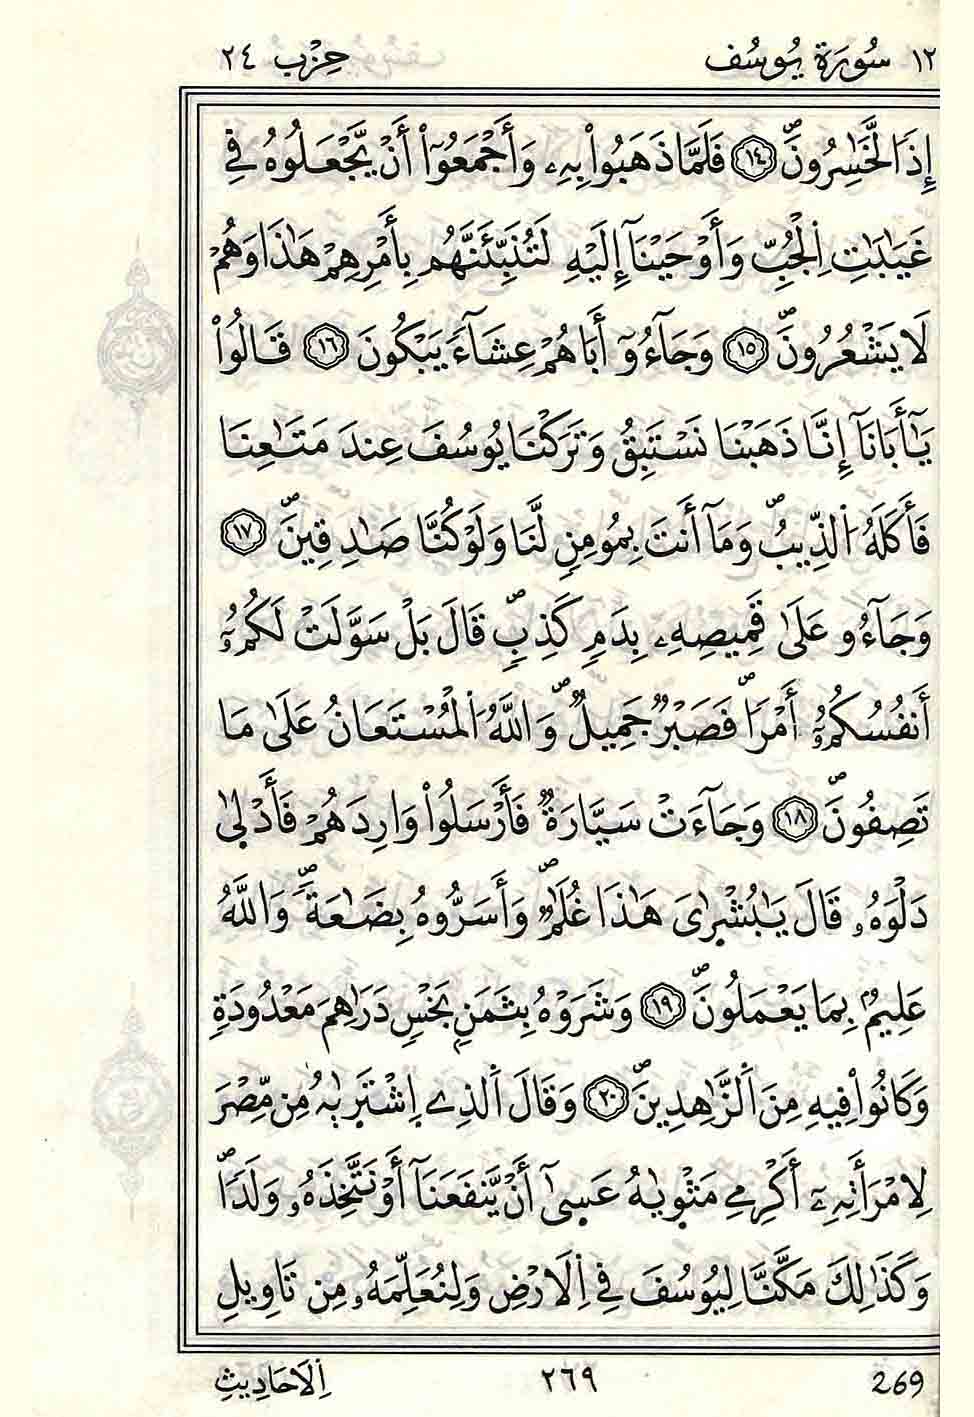 ١٢ سُورَةُ يُوسُف حِزْب ٢٤
إِذَا لَّخَٰسِرُونَۖ ١٤ فَلَمَّا ذَهَبُواْ بِهِۦ وَأَجْمَعُوٓاْ أَنْ يَّجْعَلُوهُ فِے
غَيَٰبَٰتِ اِ۬لْجُبِّ وَأَوْحَيْنَآ إِلَيْهِ لَتُنَبِّئَنَّهُم بِأَمْرِهِمْ هَٰذَا وَهُمْ
لَا يَشْعُرُونَۖ ١٥ وَجَآءُوٓ أَبَاهُمْ عِشَآءٗ يَبْكُونَ ١٦ قَالُواْ
يَٰٓأَبَانَآ إِنَّا ذَهَبْنَا نَسْتَبِقُ وَتَرَكْنَا يُوسُفَ عِندَ مَتَٰعِنَا
فَأَكَلَهُ اُ۬لذِّيبُۖ وَمَآ أَنتَ بِمُومِنٖ لَّنَا وَلَوْ كُنَّا صَٰدِقِينَۖ ١٧
وَجَآءُو عَلَىٰ قَمِيصِهِۦ بِدَمٖ كَذِبٖۖ قَالَ بَلْ سَوَّلَتْ لَكُمُۥٓ
أَنفُسُكُمُۥٓ أَمْرٗاۖ فَصَبْرٞ جَمِيلٞۖ وَاللَّهُ اُ۬لْمُسْتَعَانُ عَلَىٰ مَا
تَصِفُونَۖ ١٨ وَجَآءَتْ سَيَّارَةٞ فَأَرْسَلُواْ وَارِدَهُمْ فَأَدْلَىٰ
دَلْوَهُۥ قَالَ يَٰبُشْرَٰىَ هَٰذَا غُلَٰمٞۖ وَأَسَرُّوهُ بِضَٰعَةٗۖ وَاللَّهُ
عَلِيمُۢ بِمَا يَعْمَلُونَۖ ١٩ وَشَرَوْهُ بِثَمَنِۢ بَخْسٖ دَرَٰهِمَ مَعْدُودَةٖ
وَكَانُواْ فِيهِ مِنَ اَ۬لزَّٰهِدِينَۖ ٢٠ وَقَالَ اَ۬لذِے اِ۪شْتَر۪ىٰهُ مِن مِّصْرَ
لِامْرَأَتِهِۦٓ أَكْرِمِے مَثْو۪ىٰهُ عَسَىٰٓ أَنْ يَّنفَعَنَآ أَوْ نَتَّخِذَهُۥ وَلَدٗاۖ
وَكَذَٰلِكَ مَكَّنَّا لِيُوسُفَ فِے اِ۬لَارْضِ وَلِنُعَلِّمَهُۥ مِن تَاوِيلِ
اِ۬لَاحَادِيثِ ٢٦٩ 269